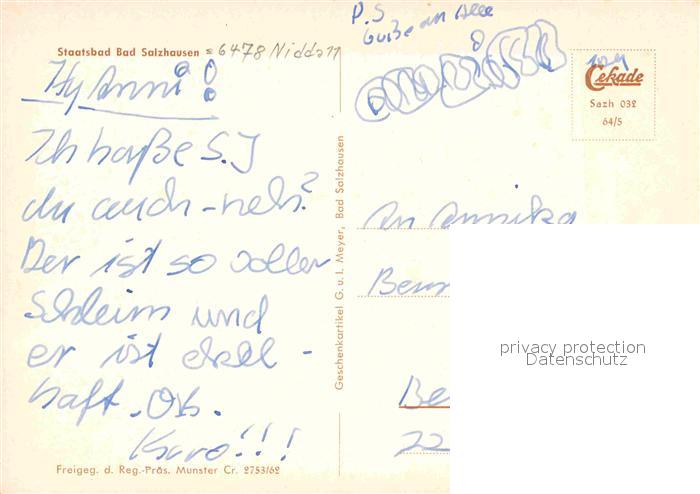 Staatsbad Bad Salzhausen = 6478 Nidda 11
Hy Anni!
Ich haße S.J
du auch - neh?
Der ist so voller
Schleim und
er ist ekel-
haft. Ok.
Karo!!!
Freigeg. d. Reg.-Präs. Münster Cr. 2753/62
Geschenkartikel G. u. I. Meyer, Bad Salzhausen
P.S
Guße an Alle
Cekade
Sazh 032
64/5
An Annika
Be
22
privacy protection
Datenschutz